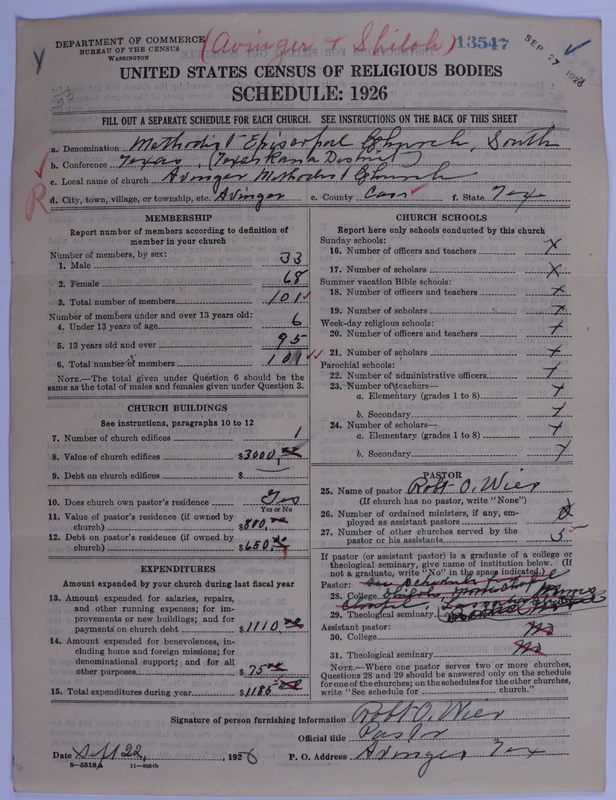 DEPARTMENT OF COMMERCE
BUREAU OF THE CENSUS
WASHINGTON
(Avinger & Shiloh)
13547
SEP 27 1926
33
UNITED STATES CENSUS OF RELIGIOUS BODIES
SCHEDULE: 1926
FILL OUT A SEPARATE SCHEDULE FOR EACH CHURCH. SEE INSTRUCTIONS ON THE BACK OF THIS SHEET
a. Denomination Methodist Episcopal Church, South
b. Conference Texas, (Texarkana District)
c. Local name of church Avinger Methodist Church
R
d. City, town, village, or township, etc. Avinger e. County Cass f. State Tex
MEMBERSHIP
Report number of members according to definition of
member in your church
Number of members, by sex:
1. Male 33
2. Female 68
3. Total number of members 101
Number of members under and over 13 years old:
4. Under 13 years of age 6
5. 13 years old and over 95
6. Total number of members 101
NOTE.—The total given under Question 6 should be the
same as the total of males and females given under Question 3.
CHURCH BUILDINGS
See instructions, paragraphs 10 to 12
7. Number of church edifices 1
8. Value of church edifices $3000.00
9. Debt on church edifices $
10. Does church own pastor's residence Yes
Yes or No
11. Value of pastor's residence (if owned by
church) $800.00
12. Debt on pastor's residence (if owned by
church) $650.00
EXPENDITURES
Amount expended by your church during last fiscal year
13. Amount expended for salaries, repairs,
and other running expenses; for im-
provements or new buildings; and for
payments on church debt $1110.00
14. Amount expended for benevolences, in-
cluding home and foreign missions; for
denominational support; and for all
other purposes $75.00
15. Total expenditures during year $1185.00
CHURCH SCHOOLS
Report here only schools conducted by this church
Sunday schools:
16. Number of officers and teachers X
17. Number of scholars X
Summer vacation Bible schools:
18. Number of officers and teachers X
19. Number of scholars X
Week-day religious schools:
20. Number of officers and teachers X
21. Number of scholars X
Parochial schools:
22. Number of administrative officers X
23. Number of teachers—
a. Elementary (grades 1 to 8) X
b. Secondary X
24. Number of scholars—
a. Elementary (grades 1 to 8) X
b. Secondary X
PASTOR
25. Name of pastor Robt O. Wier
(If church has no pastor, write "None")
26. Number of ordained ministers, if any, em-
ployed as assistant pastors 0
27. Number of other churches served by the
pastor or his assistants 5
If pastor (or assistant pastor) is a graduate of a college or
theological seminary, give name of institution below. (If
not a graduate, write "No" in the space indicated.)
Pastor: See Schedule for
28. College Shiloh,
29. Theological seminary
Assistant pastor:
30. College No
31. Theological seminary No
NOTE.—Where one pastor serves two or more churches,
Questions 28 and 29 should be answered only on the schedule
for one of the churches; on the schedules for the other churches,
write "See schedule for church."
Signature of person furnishing information Robt O. Wier
Official title Pastor
Date Sept 22, 1926 P. O. Address Avinger Tex
8—5518a 11—9054b